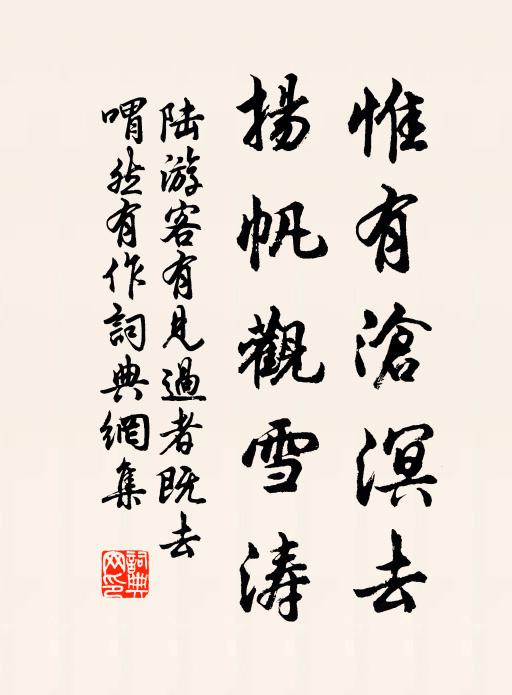 惟有滄溟去
揚帆觀雪涛
陆游客有見過者既去
喟然有作詞典網集
詞典網印